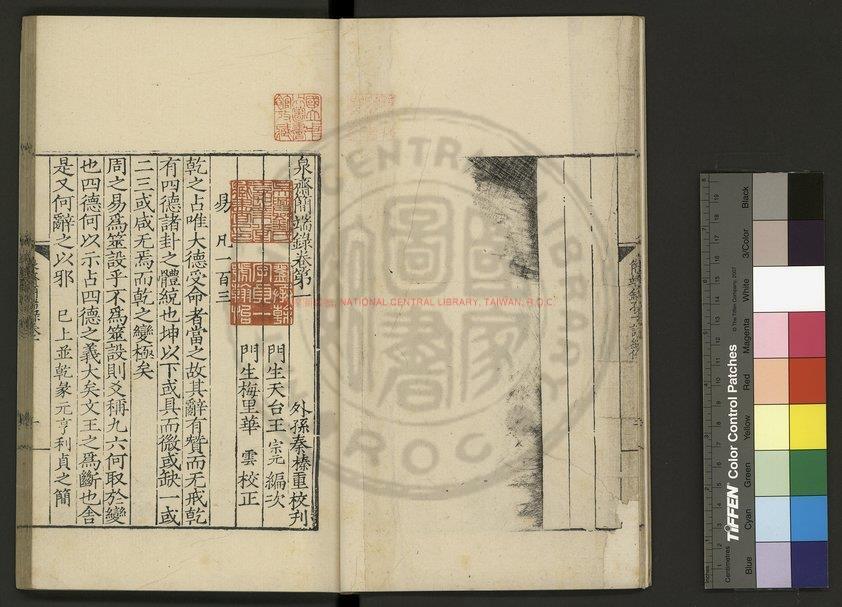 泉齋簡端錄卷第
外孫秦榛重校刊
門生天台王宗元編次
易凡一百三
門生梅里華雲校正
乾之占唯大德受命者當之故其辭有贊而无戒乾
有四德諸卦之體統也坤以下或具而微或缺一或
二三或咸无焉而乾之變極矣
周之易爲筮設乎不爲筮設則爻稱九六何取於變
也四德何以示占四德之義大矣文王之爲斷也舍
是又何辭之以邪 已上並乾彖元亨利貞之簡
NATIONAL CENTRAL LIBRARY, TAIWAN, R.O.C.
圖書
TIFFEN Color Control Patches
© The Tiffen Company, 2007
Centimetres
Inches
Blue
Cyan
Green
Yellow
Red
Magenta
White
3/Color
Black